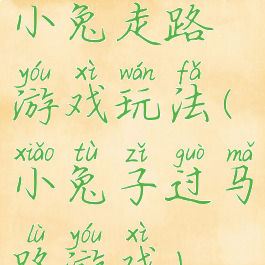 小兔走路
yóu xì wán fǎ
游戏玩法(
xiǎo tù zǐ guò mǎ
小兔子过马
lù yóu xì
路游戏)